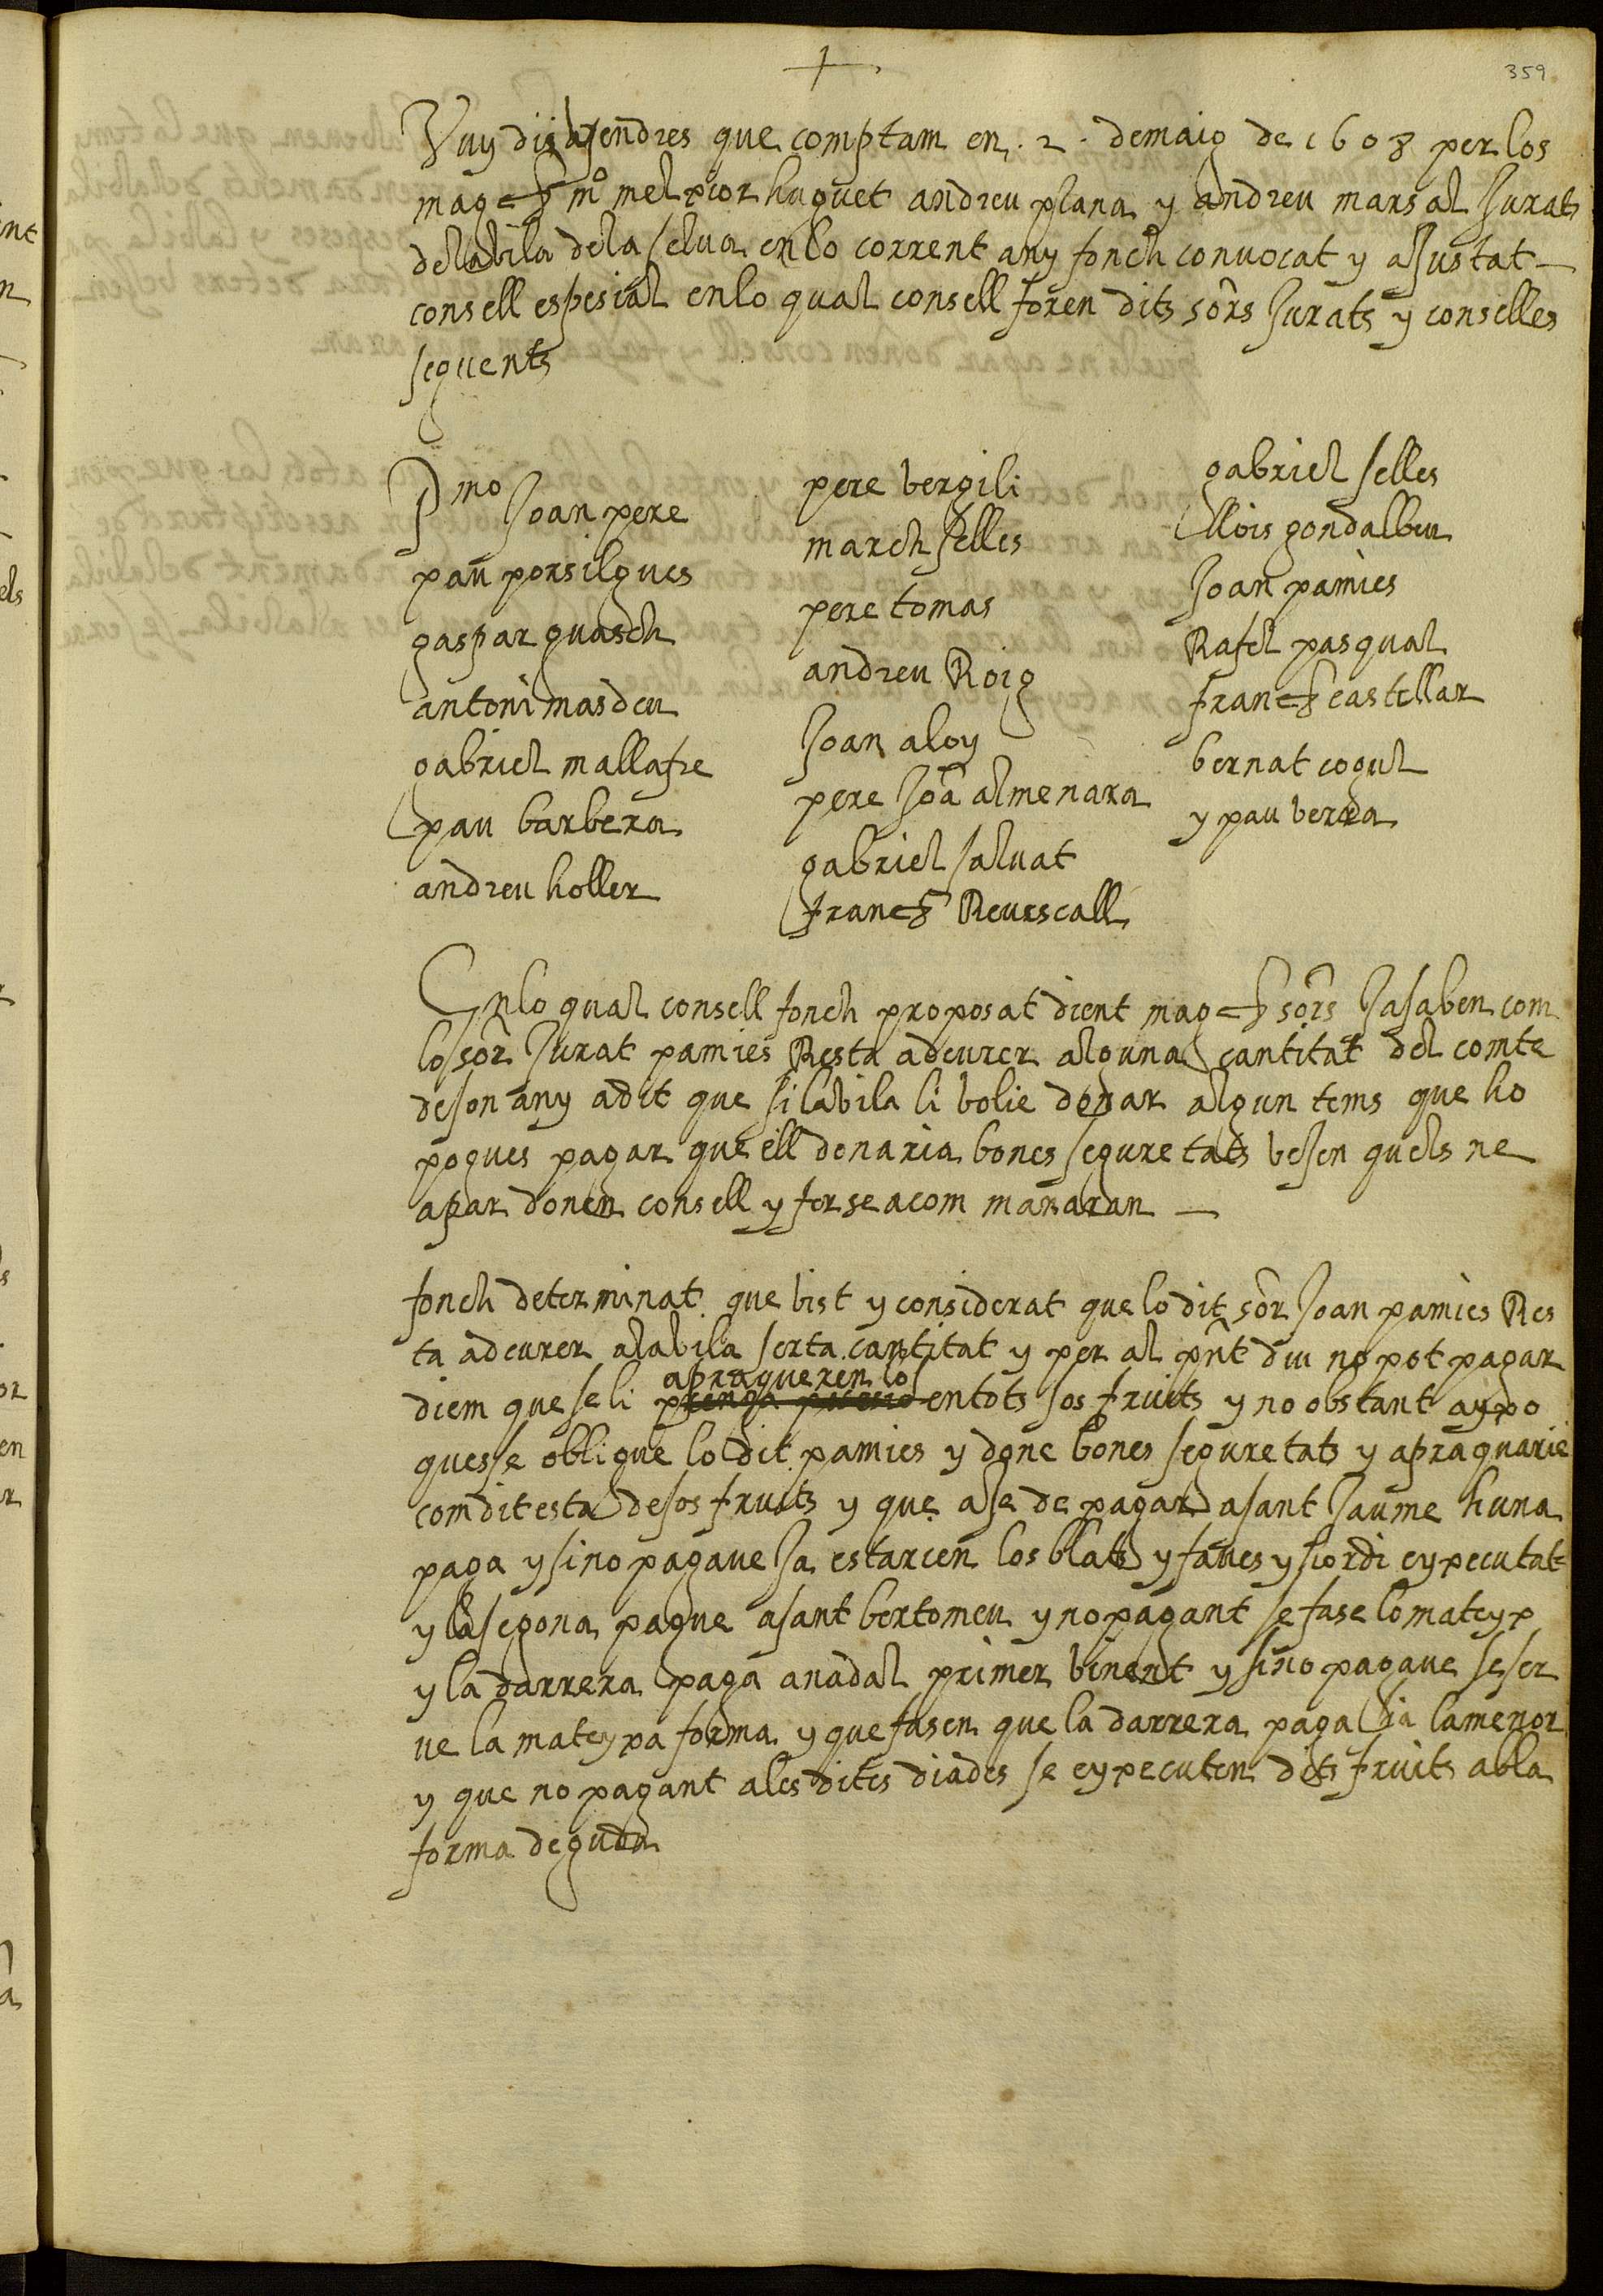 359
Vuy disajendres que comptam en .2. demaig de 1608 per los
magchs mo melxior huguet andreu plana y andreu marsal Jurats
delabila dela selua enlo corrent any fonch conuocat y ajustat
consell espesial enlo qual consell foren dits sors Jurats y conselles
seguents
Pmo Joan pere
pau porsilgues
gaspar guasch
antoni masdeu
gabriel mallafre
pau barbera
andreu holler
pere bergili
march selles
pere tomas
andreu Roig
Joan aloy
pere Joa almenara
gabriel saluat
franch Reurscall
gabriel selles
Llois gondalbeu
Joan pamies
Rafel pasqual
franch castellar
bernat cogul
y pau berda
Enlo qual consell fonch proposat dient magchs sors Jasaben com
lo sor Jurat pamies Resta adeurer alguna cantitat del comte
deson any adit que si labila li bolie donar algun tems que ho
pogues pagar que ell donaria bones seguretats besen quels ne
apar donen consell y ferse acom manaran
fonch determinat que bist y considerat que lo dit sor Joan pamies Res
ta adeurer alabila serta cantitat y per al pnt diu no pot pagar
apraqueren lo
diem que se li entots sos fruits y no obstant ayxo
quesse obligue lo dit pamies y done bones seguretats y apraquarie
com dit esta desos fruits y que ase de pagar asant Jaume huna
paga y sino pagaue Ja estarien los blats y faues y siordi eyxecutat
y la segona pague asant bertomeu y no pagant se fase lo mateyx
y la darrera paga anadal primer binent y sino pagaue seser
ue la mateyxa forma y que fasen que la darrera paga sia la menor
y que no pagant ales dites diades se eyxecuten dits fruits abla
forma deguda